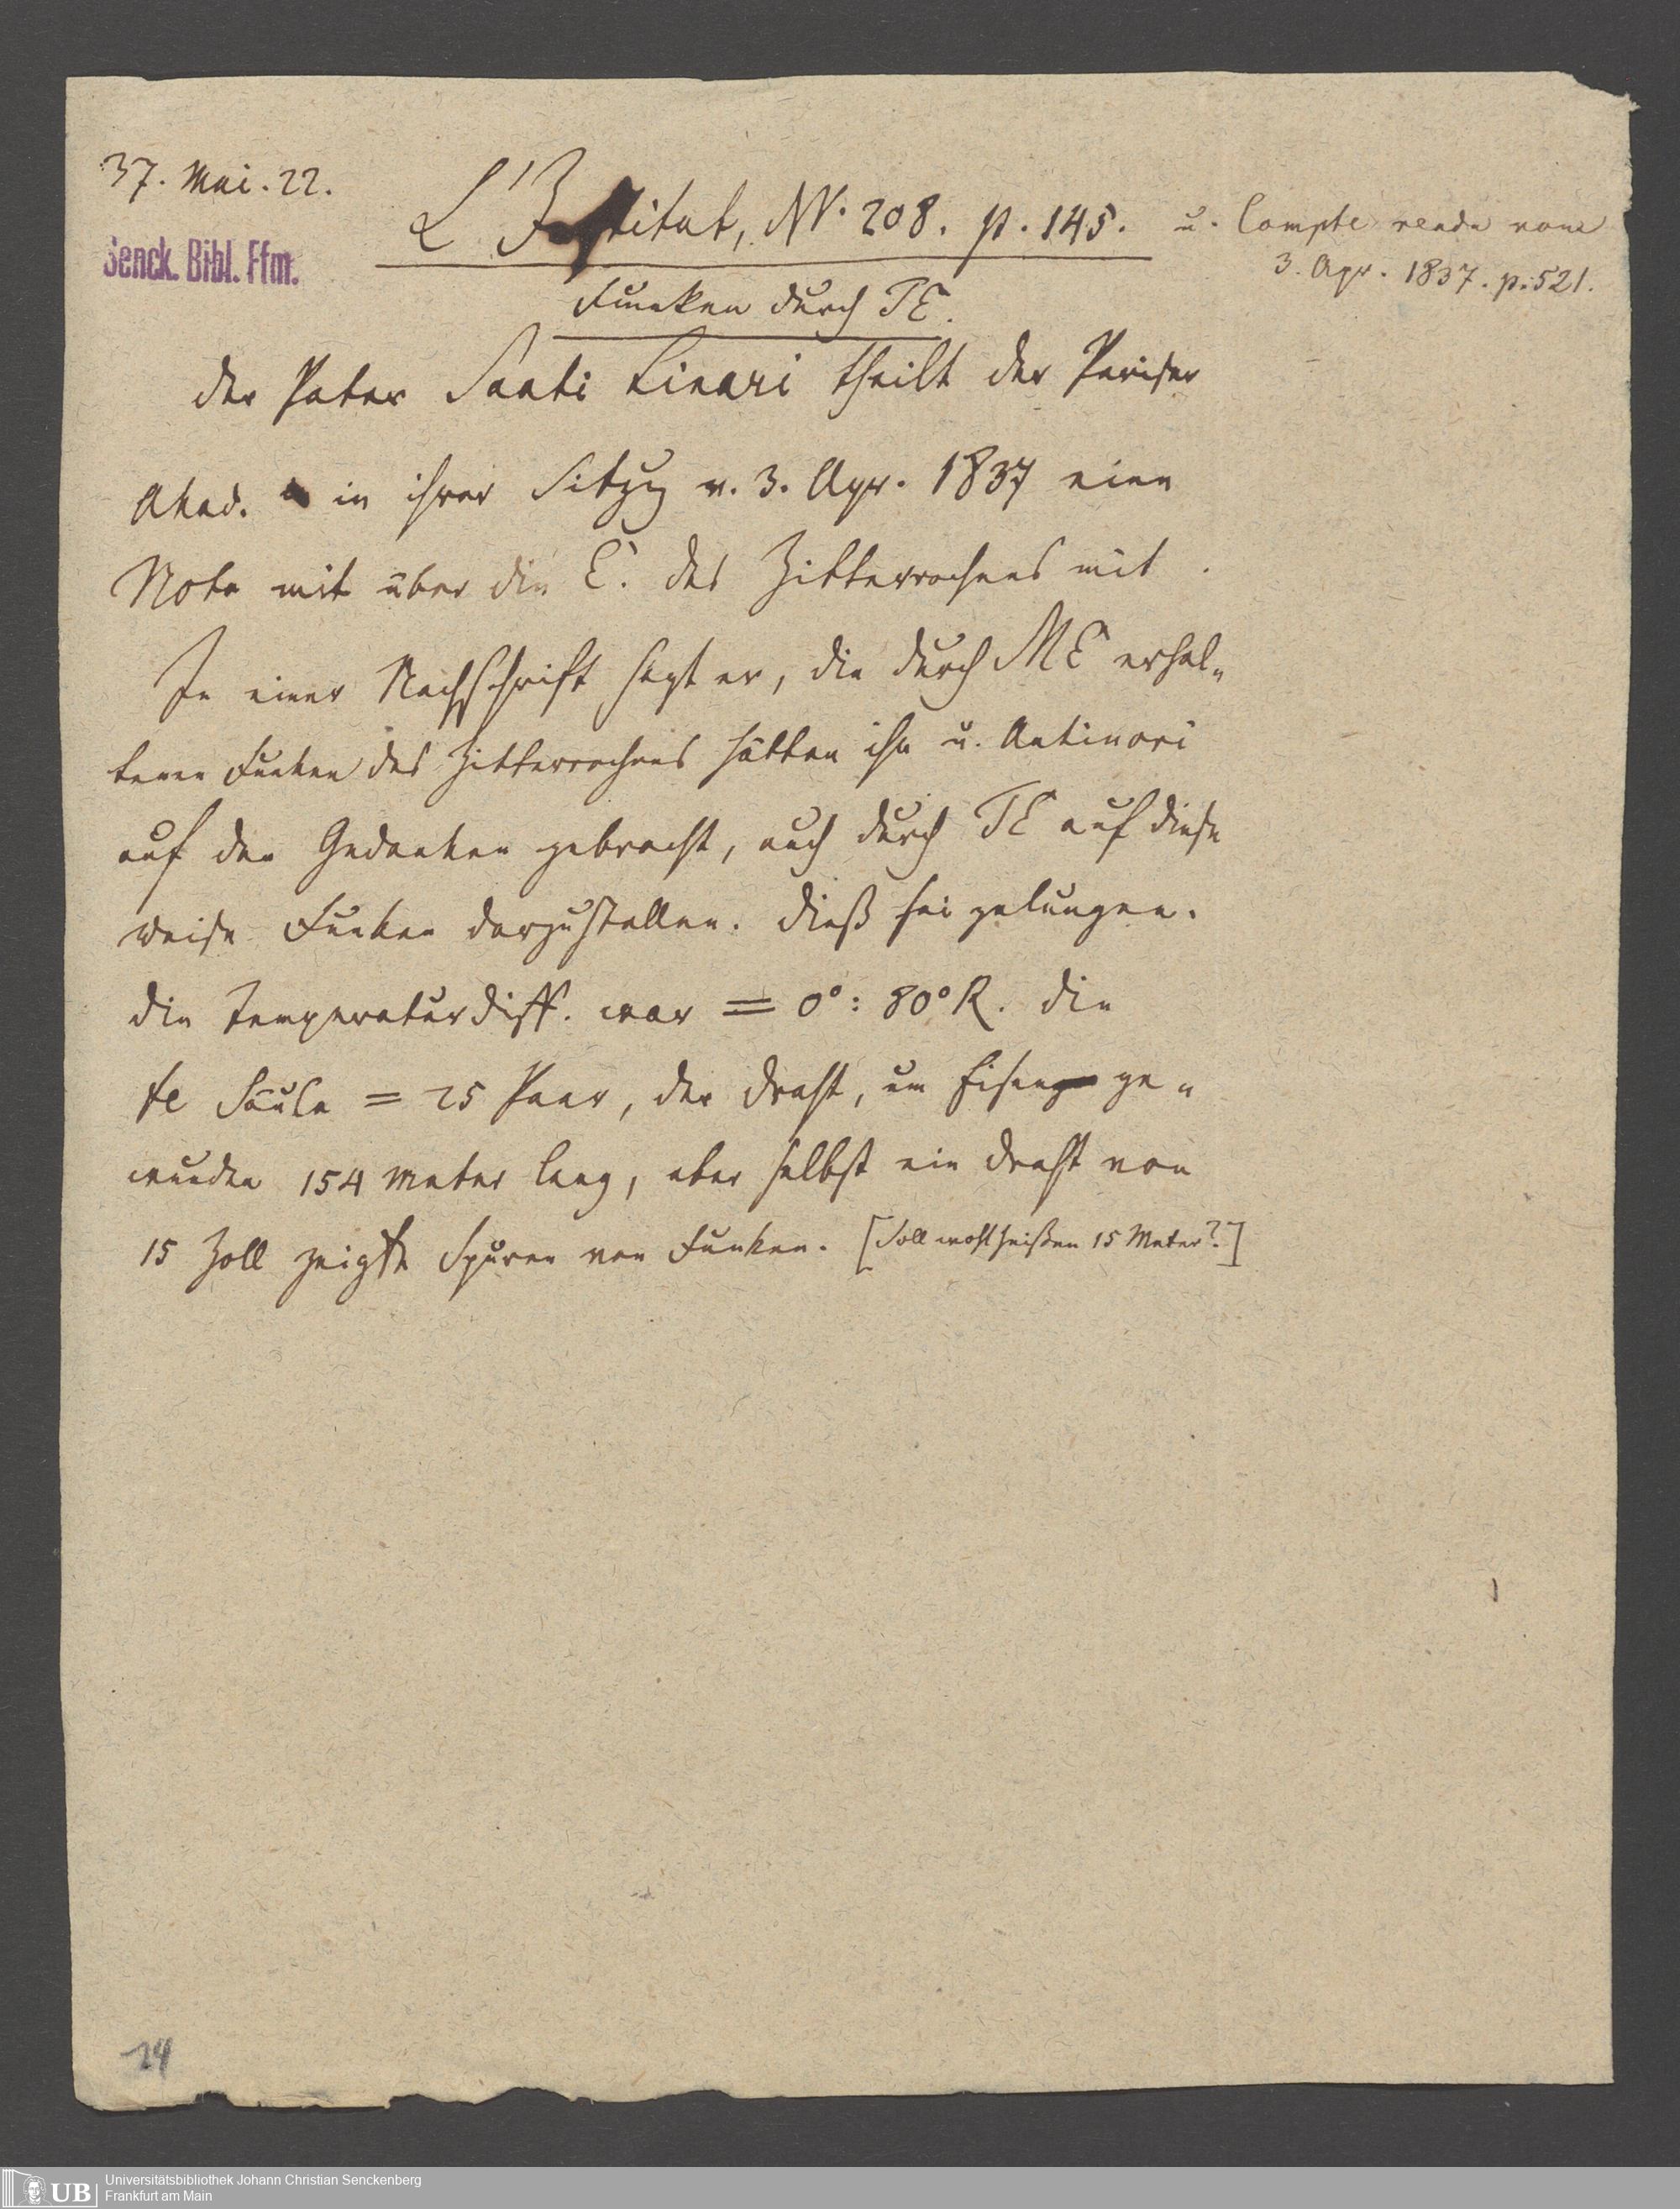 37. Mai. 22.
L'Institut, No. 208. p. 145. u. Compte rendu vom
3. Apr. 1837. p. 521.
Senck. Bibl. Ffm.
Funken durch TE.
Der Pater Santi Linari theilt der Pariser
Akad. in ihrer Sitzug v. 3. Apr. 1837 eine
Note mit über die E. des Zitterrochens mit.
In einer Nachschrift sagt er, die durch ME erhal-
tenen Funken des Zitterrochens hätten ihn u. Antinori
auf den Gedanken gebracht, auch durch TE auf diese
Weise Funken darzustellen. Dieß sei gelungen.
Die Temperaturdiff. war = 0°: 80° R. Die
te Säule = 25 Paar, der Draht, um Eisen ge-
wunden 154 Meter lang, aber selbst ein Draht von
15 Zoll zeigte Spuren von Funken. [Soll wohl heißen 15 Meter?]
24
UB Universitätsbibliothek Johann Christian Senckenberg
Frankfurt am Main